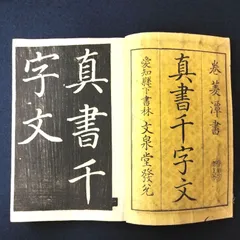 卷菱潭書
真書千字文
愛知縣下書林 文泉堂發兌
真書千
字文